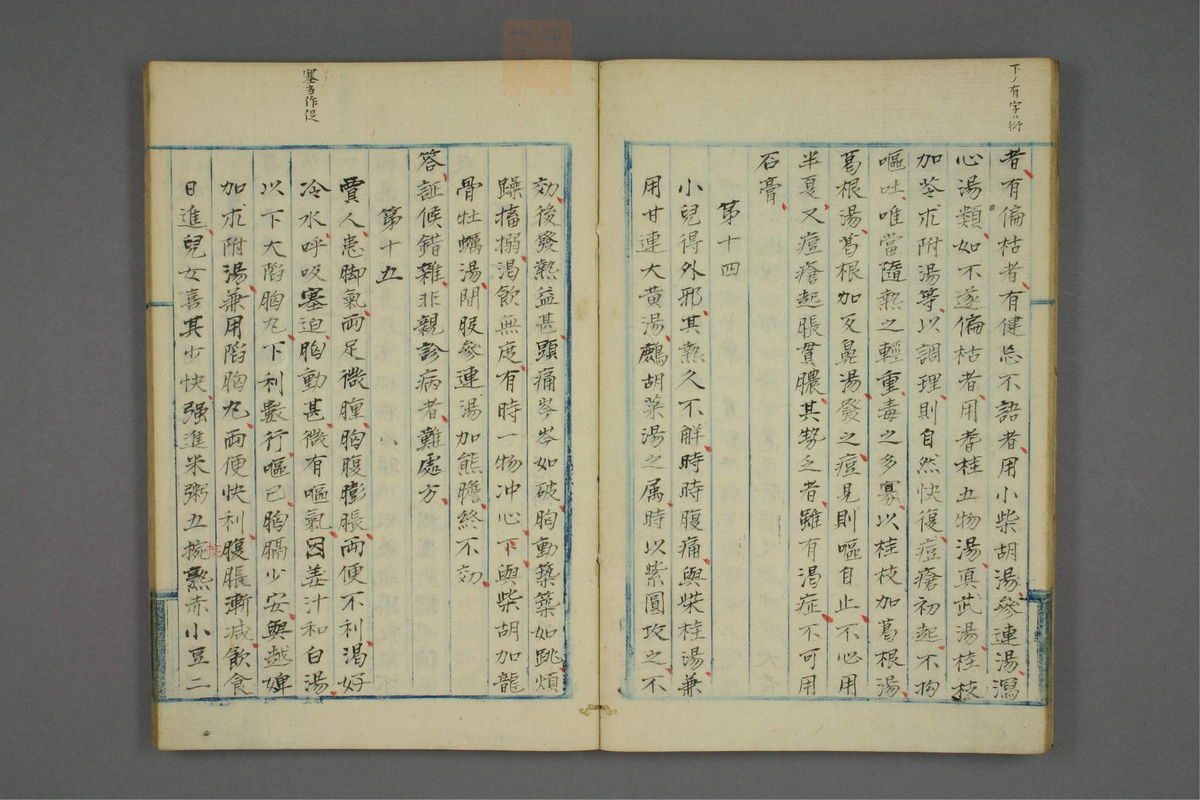 下ノ有字ハ衍
者有偏枯者有健忘不語者用小柴胡湯參連湯瀉
心湯類如不遂偏枯者用耆桂五物湯真武湯桂枝
加苓朮附湯等以調理則自然快復痘瘡初起不拘
嘔吐唯當隨熱之輕重毒之多寡以桂枝加葛根湯
葛根湯葛根加反鼻湯發之痘見則嘔自止不必用
半夏又痘瘡起脹貫膿其勢乏者雖有渴症不可用
石膏
第十四
小兒得外邪其熱久不解時時腹痛與柴桂湯兼
用甘連大黃湯鷓胡菜湯之属時以紫圓攻之不
効後發熱益甚頭痛岑岑如破胸動築築如跳煩
躁搐搦渴飲無度有時一物冲心下與柴胡加龍
骨牡蠣湯間服參連湯加熊膽終不効
答証候錯雜非親診病者難處方
第十五
賈人患脚氣兩足微腫胸腹膨脹兩便不利渴好
冷水呼吸塞迫胸動甚微有嘔氣因姜汁和白湯
以下大陷胸丸下利數行嘔已胸膈少安與越婢
加朮附湯兼用陷胸丸兩便快利腹脹漸減飲食
日進兒女喜其少快强進米粥五椀熟赤小豆二
塞当作促